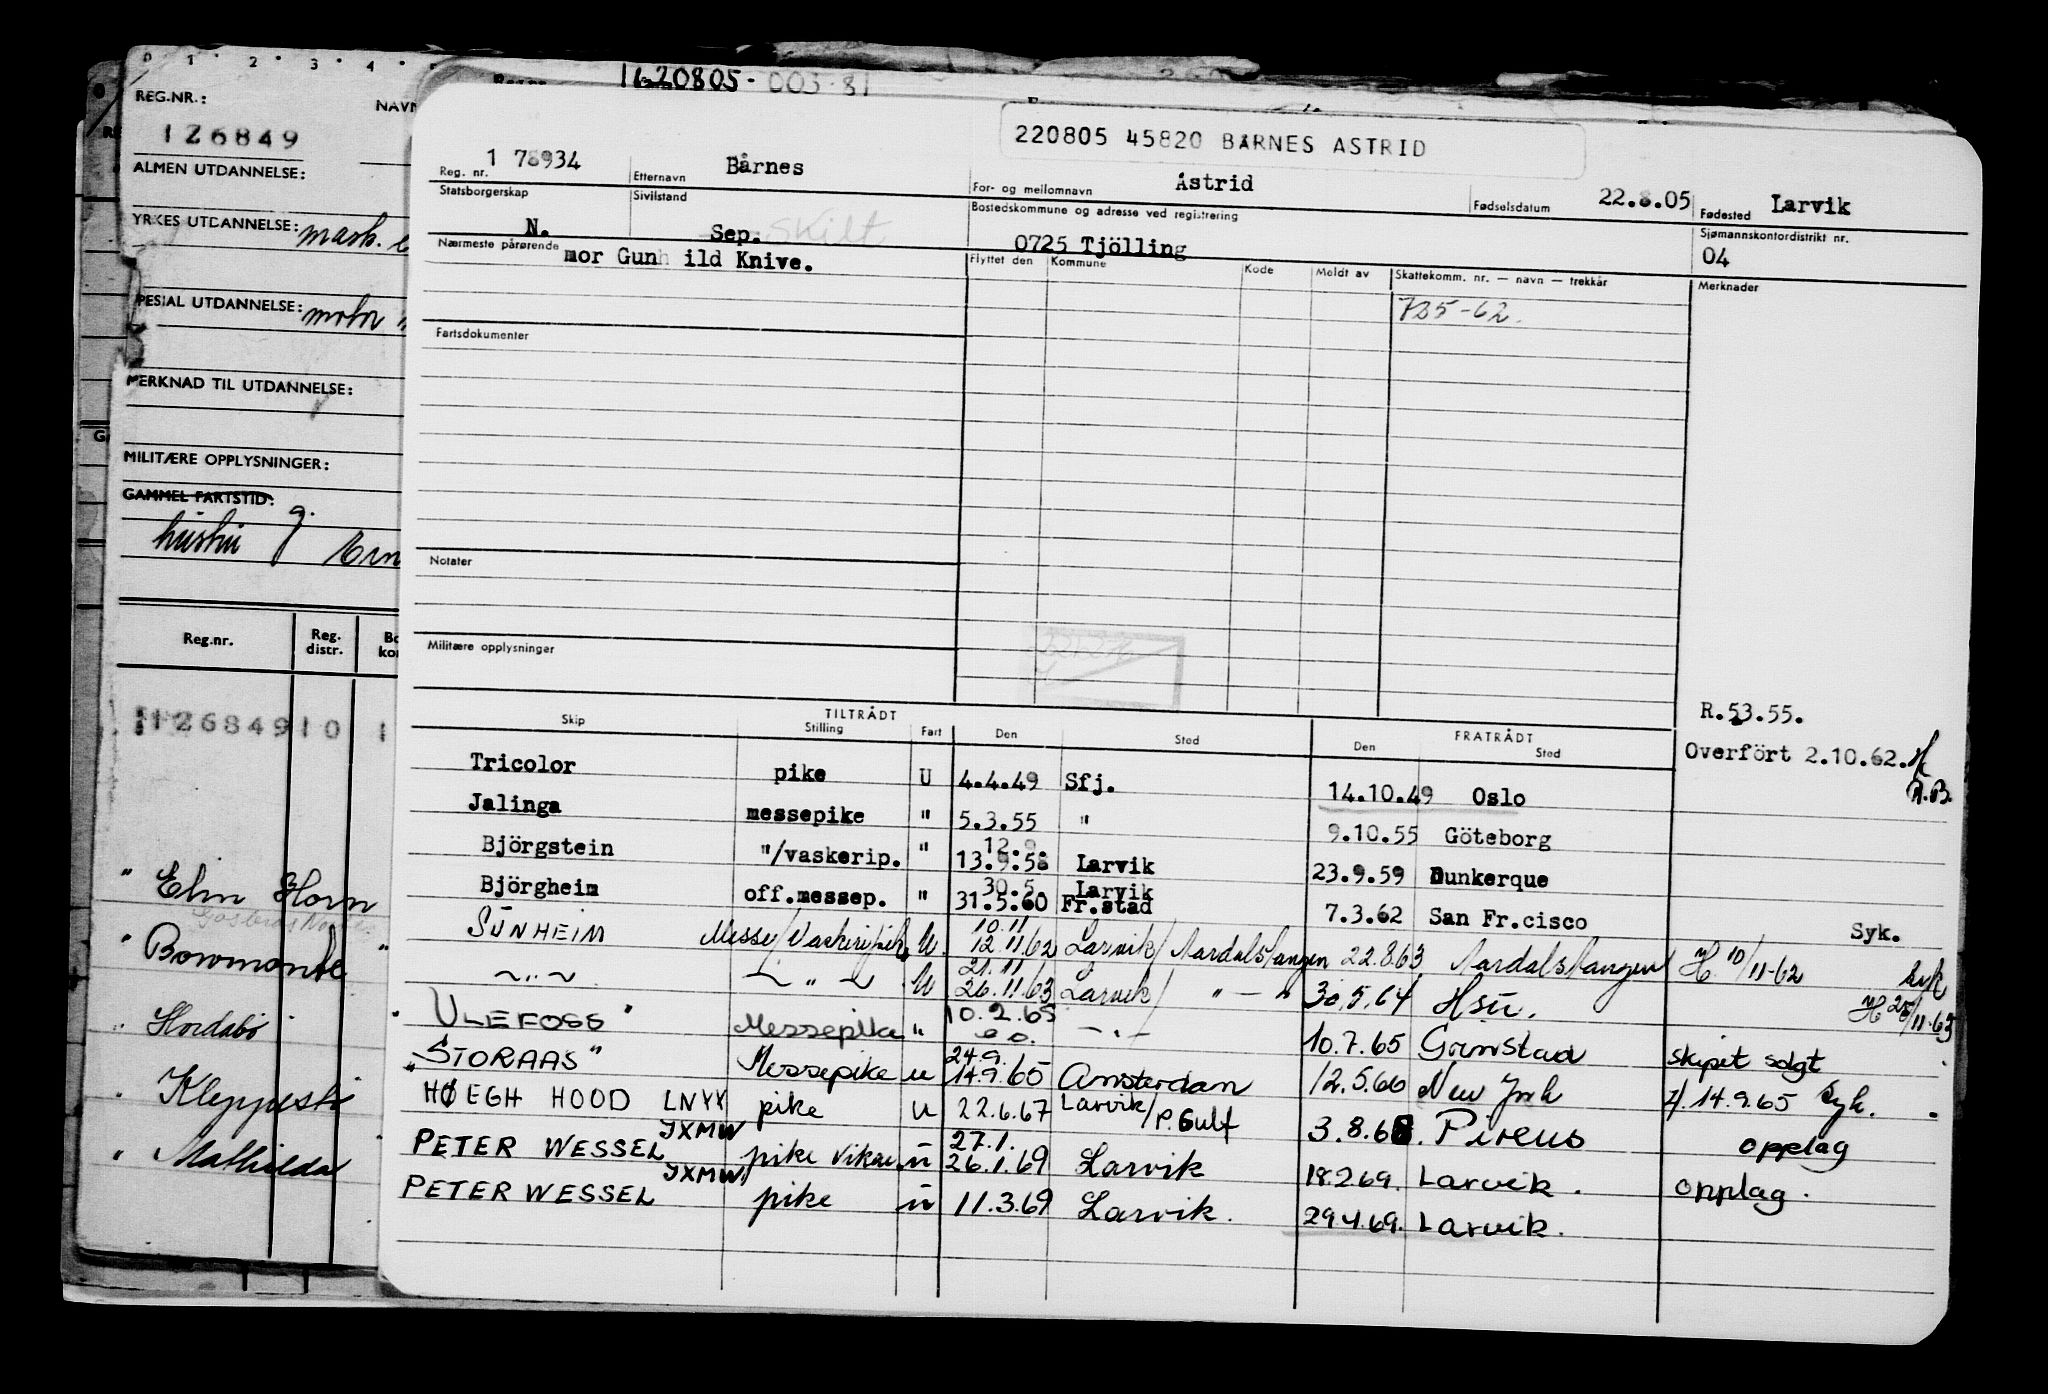 0 1 2 3 4
REG.NR.:
NAVN
1Z6849
ALMEN UTDANNELSE:
YRKES UTDANNELSE: mask.
SPESIAL UTDANNELSE: motor
MERKNAD TIL UTDANNELSE:
MILITÆRE OPPLYSNINGER:
GAMMEL FARTSTID:
Reg.nr. Reg. distr.
1Z6849 10 1
" Elin Horn
" Bowmonte "
" Hordabø
" Mathilda
1620805-003-81
220805 45820 BÅRNES ASTRID
Reg. nr. 1 78934 Etternavn Bårnes For- og mellomnavn Astrid Fødselsdatum 22.8.05 Fødested Larvik
Statsborgerskap N. Sivilstand Sep. Skilt Bostedskommune og adresse ved registrering 0725 Tjölling Sjømannskontordistrikt nr. 04
Nærmeste pårørende mor Gunhild Knive. Flyttet den Kommune Kode Meldt av Skattekomm. nr. — navn — trekkår Merknader
725-62.
Fartsdokumenter
Notater
Militære opplysninger
R.53.55.
TILTRÅDT FRATRÅDT
Skip Stilling Fart Den Sted Den Sted
Overfört 2.10.62.
Tricolor pike U 4.4.49 Sfj. 14.10.49 Oslo
Jalinga messepike " 5.3.55 " 9.10.55 Göteborg
Björgstein "/vaskerip. " 12.9. 13.9.58 Larvik 23.9.59 Dunkerque
Björgheim off.messep. " 30.5. 31.5.60 Larvik Fr.stad 7.3.62 San Fr.cisco Syk.
SUNHEIM Messe/Vaskeripike U. 10.11 12.11.62 Larvik/Aardalstangen 22.8.63 Aardalstangen H 10/11-62 Syk
~ " ~ ~ " ~ U 21.11 26.11.63 Larvik/ " — " 30.5.64 Hsu. H 26/11-63
" ULEFOSS " Messepike " 10.2.65 — " — 10.7.65 Grimstad skipet solgt
"STORAAS" Messepike u 24.9. 14.9.65 Amsterdam 12.5.66 New York 14.9.65 Syk.
HØEGH HOOD LNYX pike u 22.6.67 Larvik/P.Gulf 3.8.68. Pireus opplag
PETER WESSEL JXMW pike vikar u 27.1. 26.1.69 Larvik 18.2.69. Larvik. opplag.
PETER WESSEL JXMW pike u 11.3.69 Larvik. 29.4.69. Larvik.